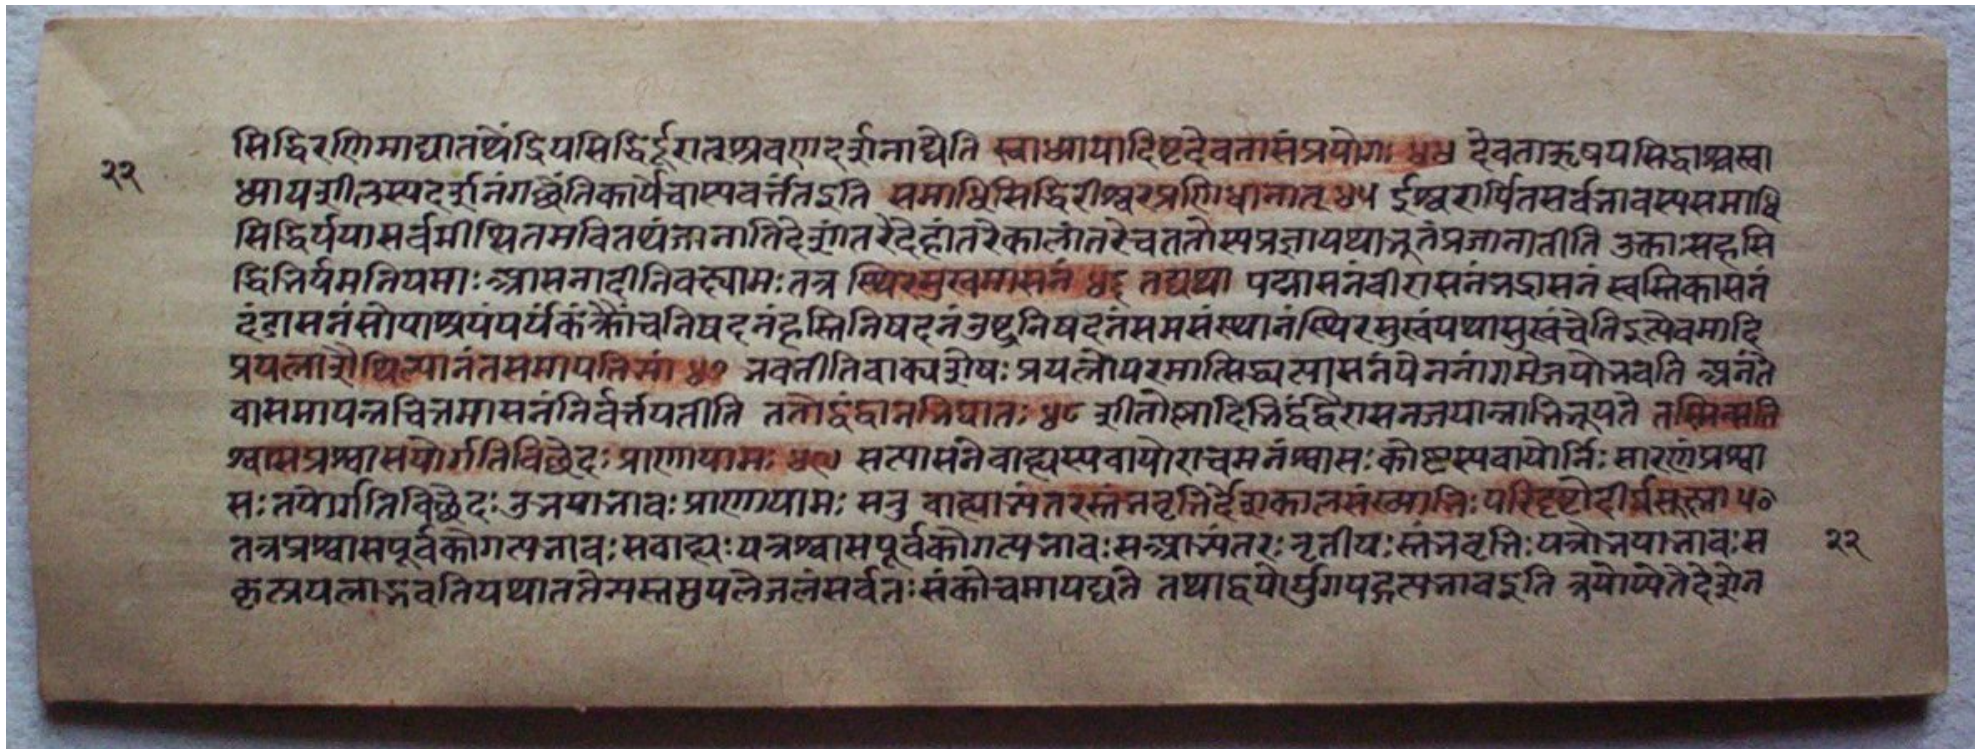 सिद्धिरणिमाद्यातथेंद्रियसिद्धिर्दूरात्श्रवणदर्शनाद्येति स्वाध्यायादिष्टदेवतासंप्रयोगः ४४ देवताऋषयसिद्धाश्चस्वा
२२
ध्यायशीलस्यदर्शनंगच्छंतिकार्येचास्यवर्त्ततइति समाधिसिद्धिरीश्वरप्रणिधानात् ४५ ईश्वरार्पितसर्वभावस्यसमाधि
सिद्धिर्ययासर्वमीप्थितमवितथंजानातिदेशांतरेदेहांतरेकालांतरेचततोस्यप्रज्ञायथाभूतंप्रजानातीति उक्ताःसहसि
द्धिभिर्यमनियमाःआसनादीनिवक्ष्यामःतत्र स्थिरसुखमासनं ४६ तद्यथा पद्मासनंवीरासनंभद्रासनं स्वस्तिकासनं
दंडासनंसोपाश्रयंपर्यंकंक्रौंचनिषदनंहस्तिनिषदनंउष्ट्रनिषदनंसमसंस्थानंस्थिरसुखंयथासुखंचेतिइत्येवमादि
प्रयत्नाशैथिल्यानंतसमापत्तिभ्यां ४७ भवतीतिवाक्यशेषः प्रयत्नोपरमात्सिद्ध्यत्यासनंयेननांगमेजयोभवति अनंते
वासमापन्नचित्तमासनंनिर्वर्त्तयतीति ततोद्वंद्वानभिघातः ४८ शीतोष्णादिभिर्द्वंद्वैरासनजयान्नाभिभूयते तस्मिन्सति
श्वासप्रश्वासयोर्गतिविछेदः प्राणायामः ४९ सत्यासनेबाह्यस्यवायोराचमनंश्वासः कौष्टस्यवायोर्निःसारणंप्रश्वा
सःतयोर्गतिविछेदःउभयाभावः प्राणायामः सतु बाह्याभ्यंतरस्तंभवृत्तिर्देशकालसंख्याभिः परिदृष्टोदीर्घसूक्ष्मः ५०
तत्रप्रश्वासपूर्वकोगत्यभावः सबाह्यः यत्रश्वासपूर्वकोगत्यभावः सआभ्यंतरः तृतीयः स्तंभवृत्तिः यत्रोभयाभावः स
२२
कृत्प्रयत्नाद्भवतियथातप्तेन्यस्तमुपलेजलंसर्वतः संकोचमापद्यते तथाद्वयोर्युगपद्गत्यभावइति त्रयोप्येतेदेशेन